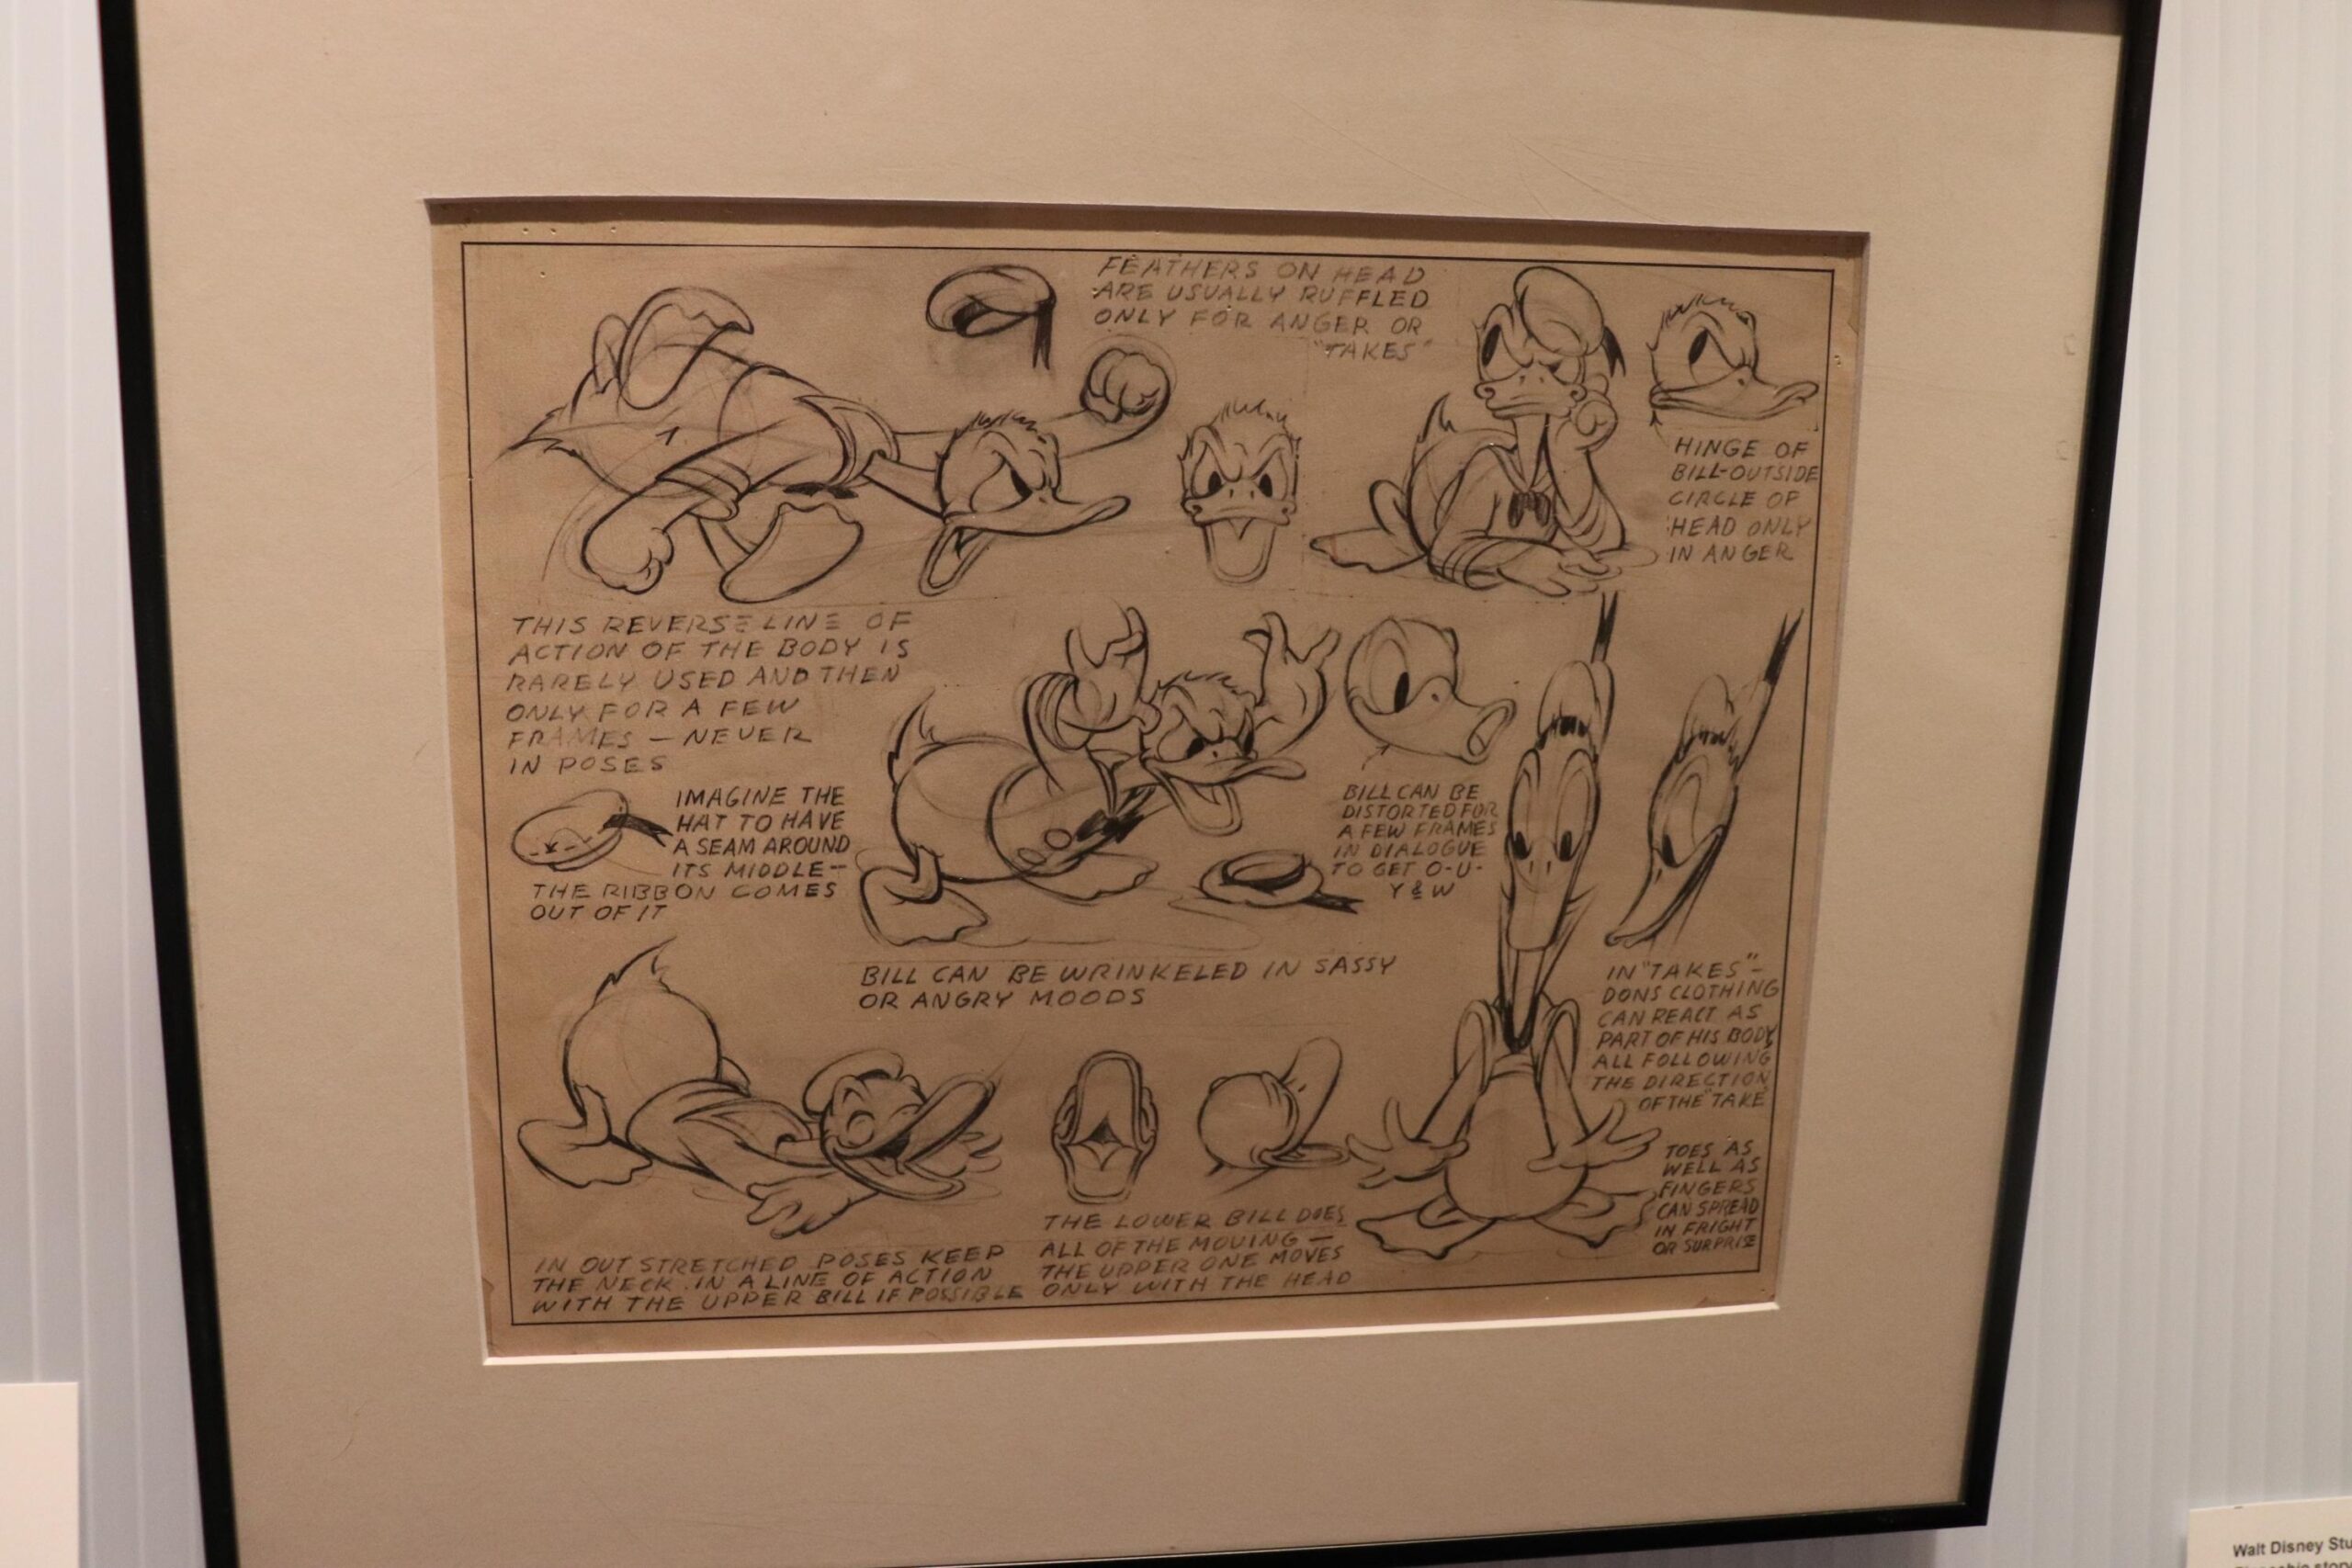 FEATHERS ON HEAD
ARE USUALLY RUFFLED
ONLY FOR ANGER OR
"TAKES"
HINGE OF
BILL-OUTSIDE
CIRCLE OF
HEAD ONLY
IN ANGER
THIS REVERSE LINE OF
ACTION OF THE BODY IS
RARELY USED AND THEN
ONLY FOR A FEW
FRAMES - NEVER
IN POSES
IMAGINE THE
HAT TO HAVE
A SEAM AROUND
ITS MIDDLE-
THE RIBBON COMES
OUT OF IT
BILL CAN BE
DISTORTED FOR
A FEW FRAMES
IN DIALOGUE
TO GET O-U-
Y & W
BILL CAN BE WRINKELED IN SASSY
OR ANGRY MOODS
IN "TAKES"-
DONS CLOTHING
CAN REACT AS
PART OF HIS BODY
ALL FOLLOWING
THE DIRECTION
OF THE "TAKE
TOES AS
WELL AS
FINGERS
CAN SPREAD
IN FRIGHT
OR SURPRISE
IN OUT STRETCHED POSES KEEP
THE NECK IN A LINE OF ACTION
WITH THE UPPER BILL IF POSSIBLE
THE LOWER BILL DOES
ALL OF THE MOVING -
THE UPPER ONE MOVES
ONLY WITH THE HEAD
Walt Disney